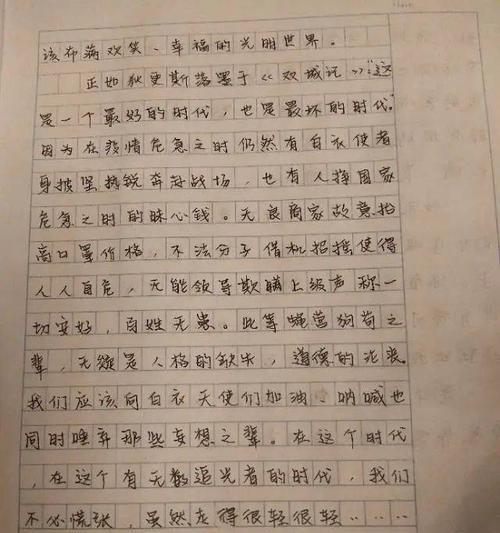 该布满欢笑、幸福的光明世界。
正如狄更斯落墨于《双城记》“这
是一个最好的时代，也是最坏的时代。”
因为在疫情危急之时仍然有白衣使者
身披坚执锐奔赴战场，也有人挣国家
危急之时的昧心钱。无良商家故意抬
高口罩价格，不法分子借机招摇使得
人人自危，无能领导欺瞒上级声称一
切安好，百姓无患。此等蝇营狗苟之
辈，无疑是人格的缺失，道德的沦丧。
我们应该向白衣天使们加油、呐喊也
同时唾弃那些妄想之辈。在这个时代
，在这个有无数追光者的时代，我们
不必慌张，虽然走得很轻很轻……